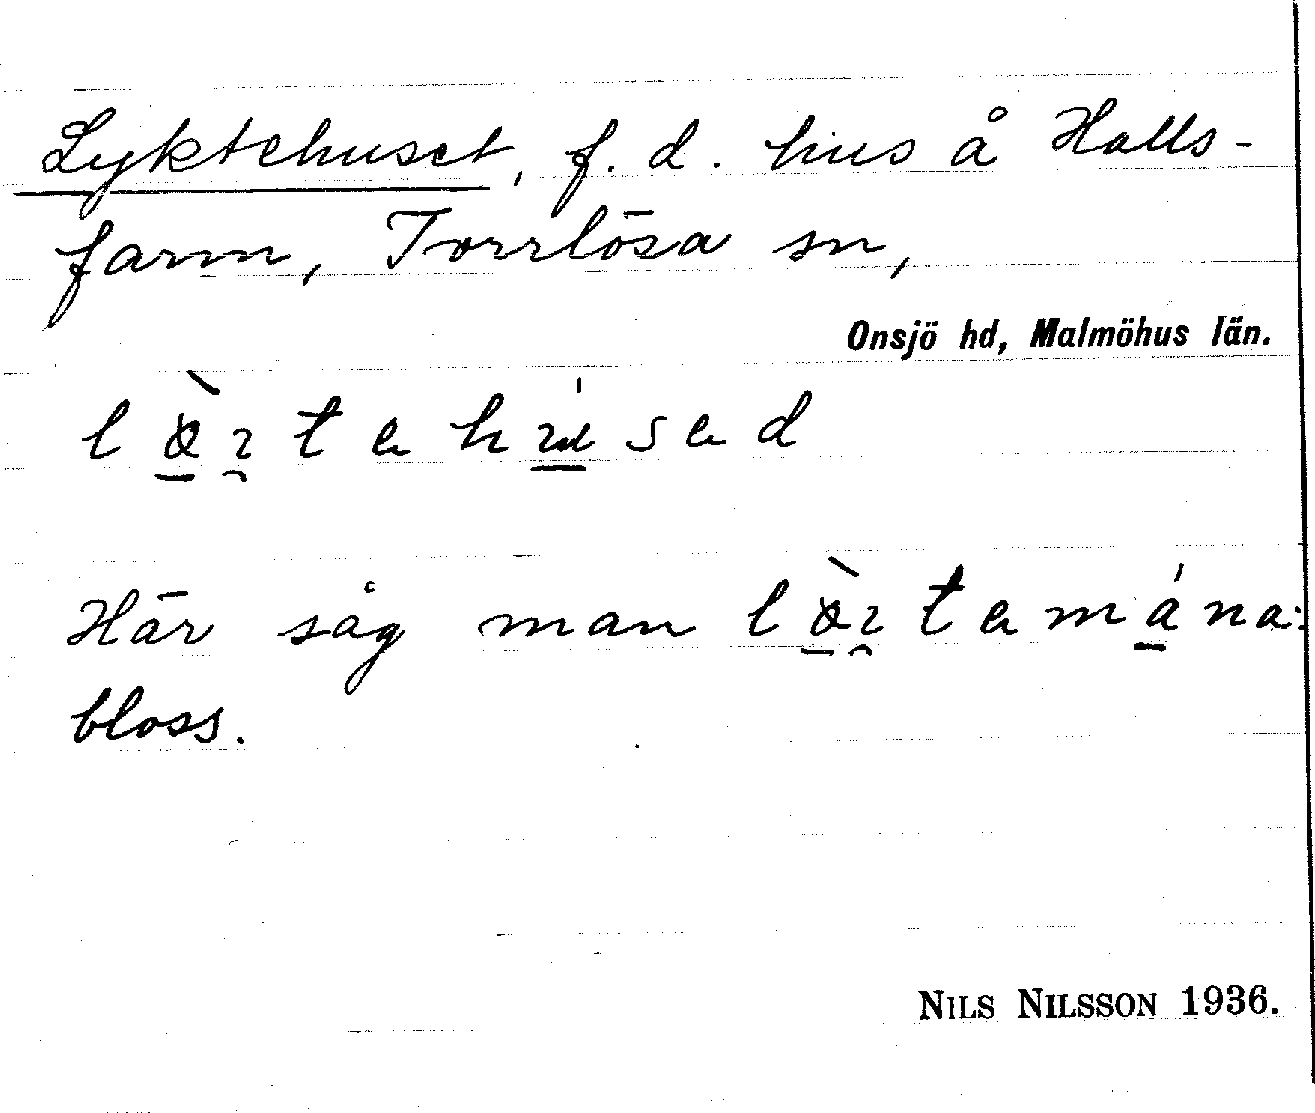 Lyktehuset, f. d. hus å Halls-
farm, Torrlösa sn,
Onsjö hd, Malmöhus län.
Här såg man
bloss.
NILS NILSSON 1936.